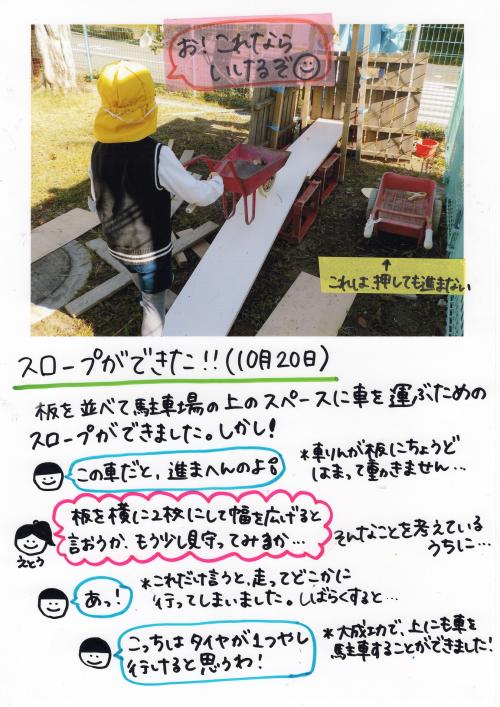 お！これなら
いけるぞ
↑
これは押しても進まない
スロープができた!!(10月20日)
板を並べて駐車場の上のスペースに車を運ぶための
スロープができました。しかし！
この車だと、進まへんのよ。
*車りんが板にちょうど
はまって動きません…
板を横に2枚にして幅を広げると
言おうか、もう少し見守ってみまか…
えとう
そんなことを考えている
うちに…
あっ！
*これだけ言うと、走ってどこかに
行ってしまいました。しばらくすると…
こっちはタイヤが1つやし
行けると思うわ！
*大成功で、上にも車を
駐車することができました！